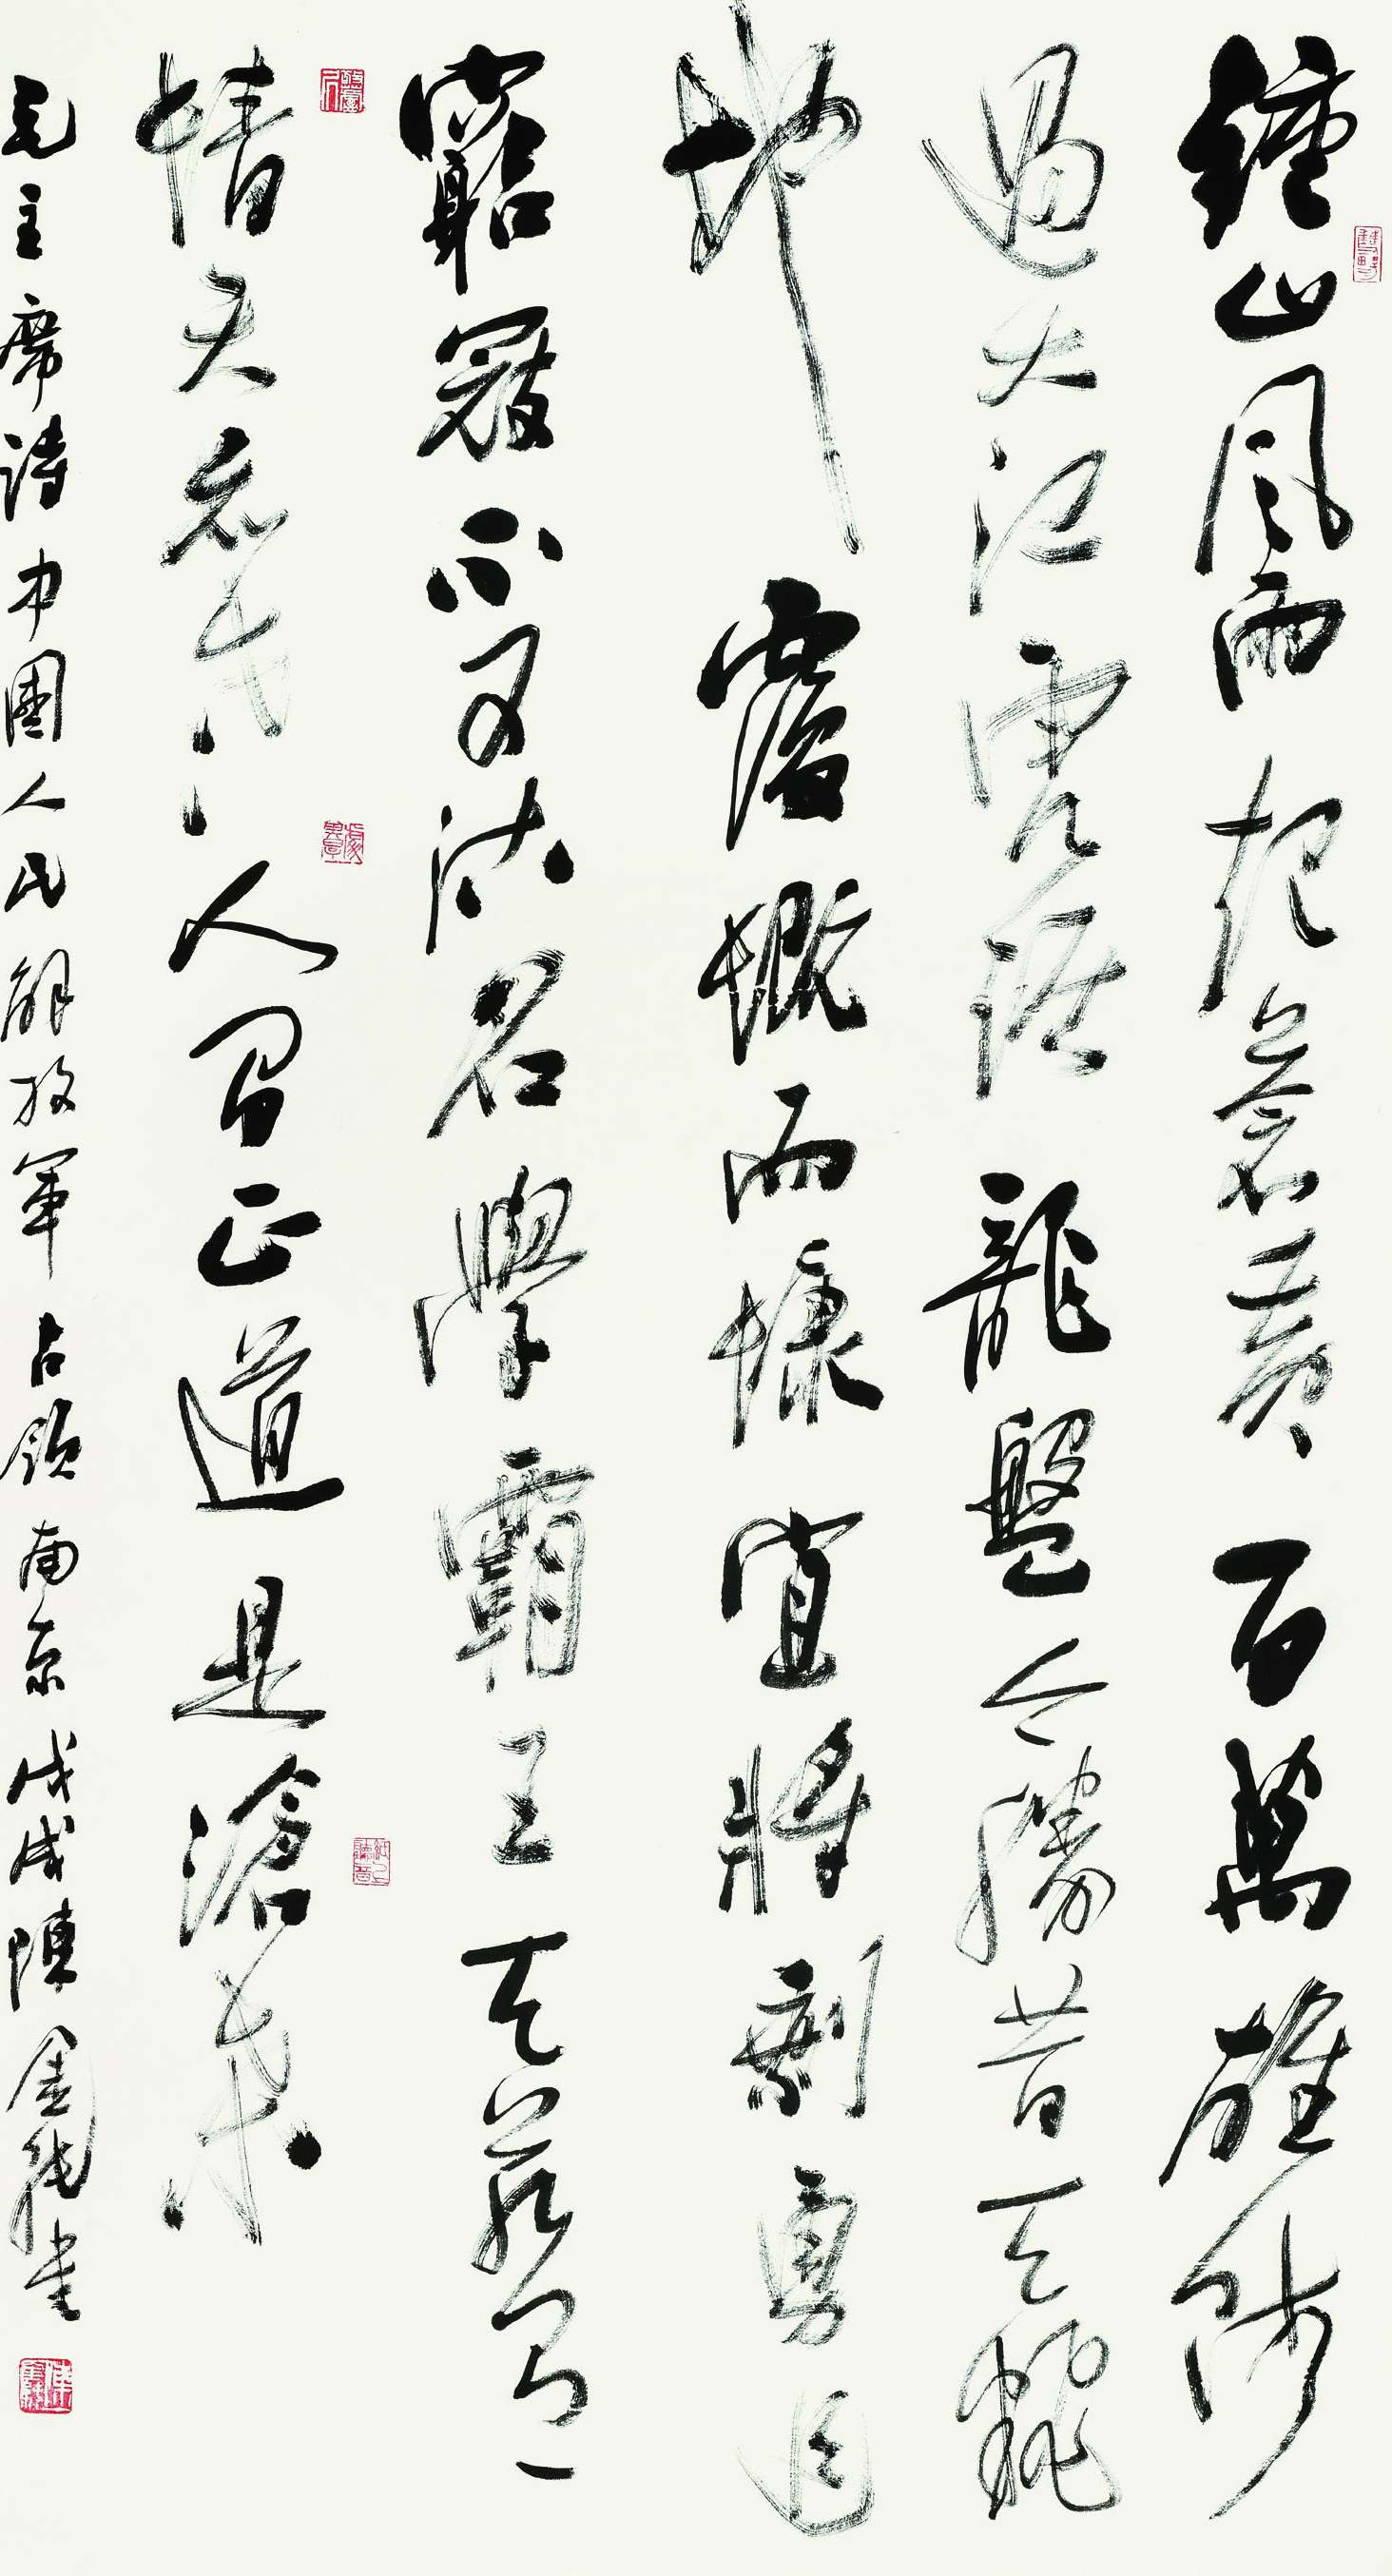 鐘山風雨起蒼黃百萬雄師
過大江虎踞龍盤今勝昔天翻
地覆慨而慷宜將剩勇追
窮寇不可沽名學霸王天若有
情天亦老人間正道是滄桑
毛主席詩中國人民解放軍占領南京戊戌陳金書